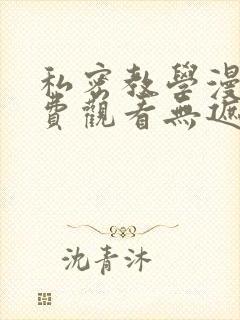 私密教學漫
費觀看無遮
沈青沐